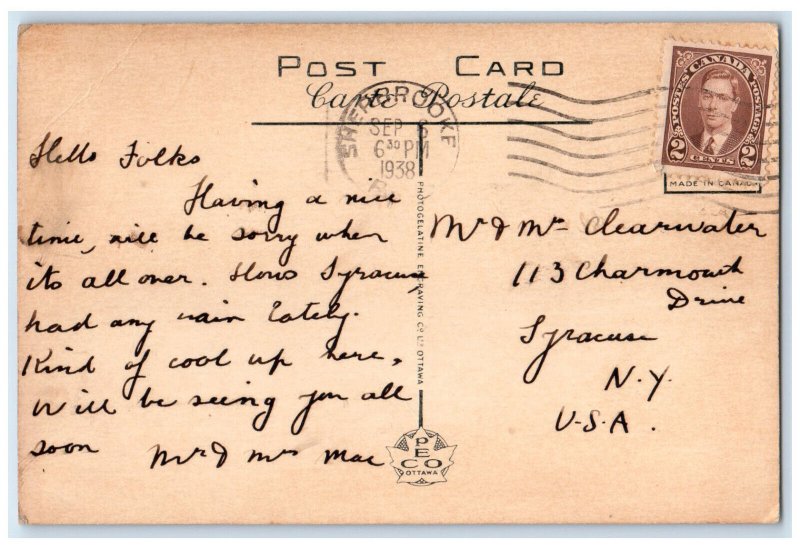 POST CARD
Carte Postale
SHERBROOKE
SEP 6
6 30 PM
1938
POSTES CANADA POSTAGE
2 CENTS 2
MADE IN CANADA
Hello Folks
Having a nice
time, will be sorry when
its all over. Hows Syracuse
had any rain lately.
Kind of cool up here,
Will be seeing you all
soon
Mr & Mrs Mac
PHOTOGELATINE ENGRAVING CO. LTD. OTTAWA
PECO
OTTAWA
Mr & Mrs Clearwater
113 Charmouth
Drive
Syracuse
N.Y.
U.S.A.